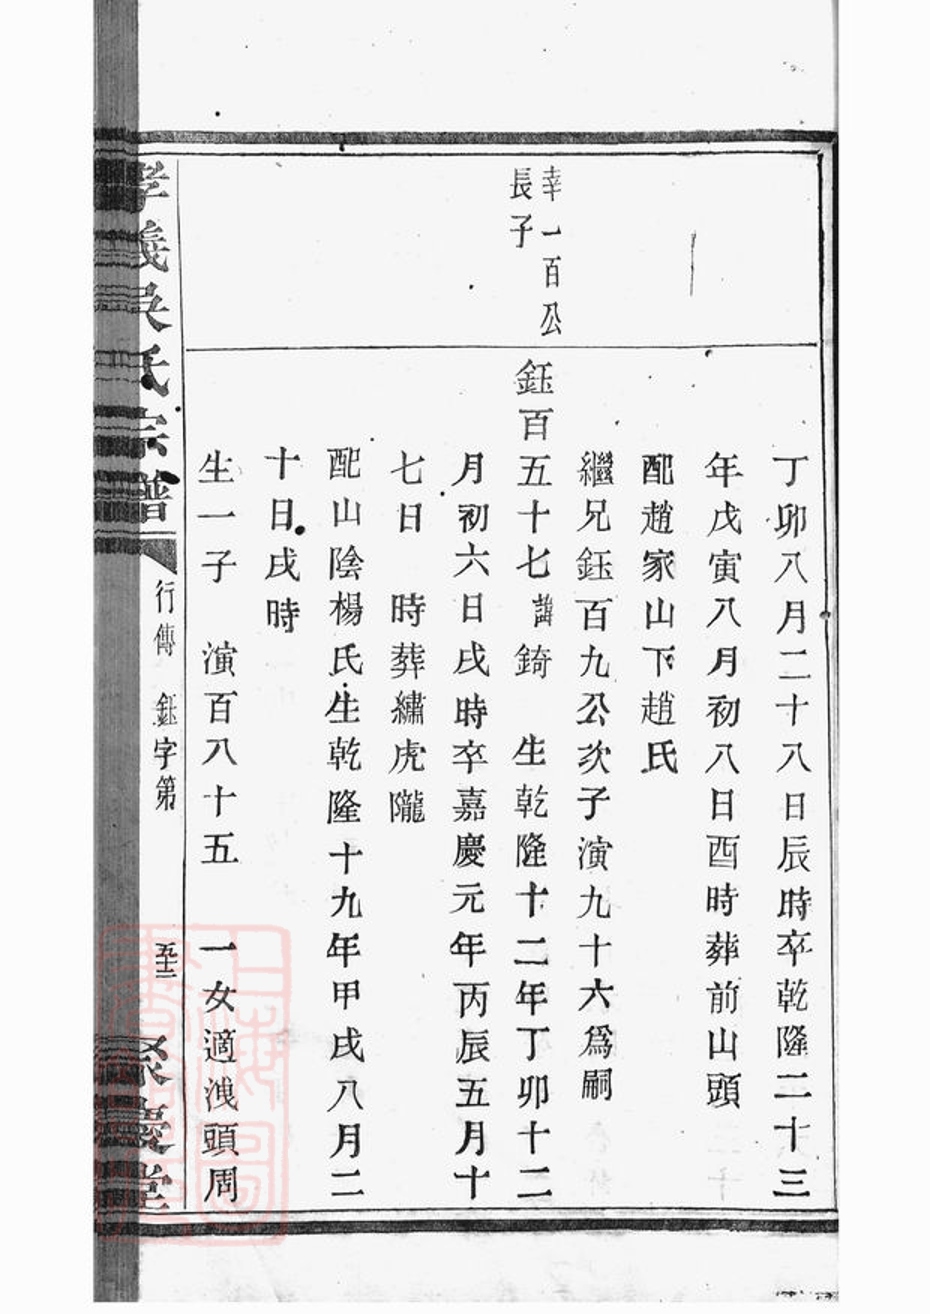 丁卯八月二十八日辰時卒乾隆二十三
年戊寅八月初八日酉時葬前山頭
配趙家山下趙氏
繼兄鈺百九公次子演九十六為嗣
幸一百公
長子
鈺百五十七諱錡　生乾隆十二年丁卯十二
月初六日戌時卒嘉慶元年丙辰五月十
七日　時葬繡虎隴
配山陰楊氏生乾隆十九年甲戌八月二
十日戌時
生一子　演百八十五　一女適洩頭周
孝義吳氏宗譜
行傳　鈺字第
五十二
聚慶堂